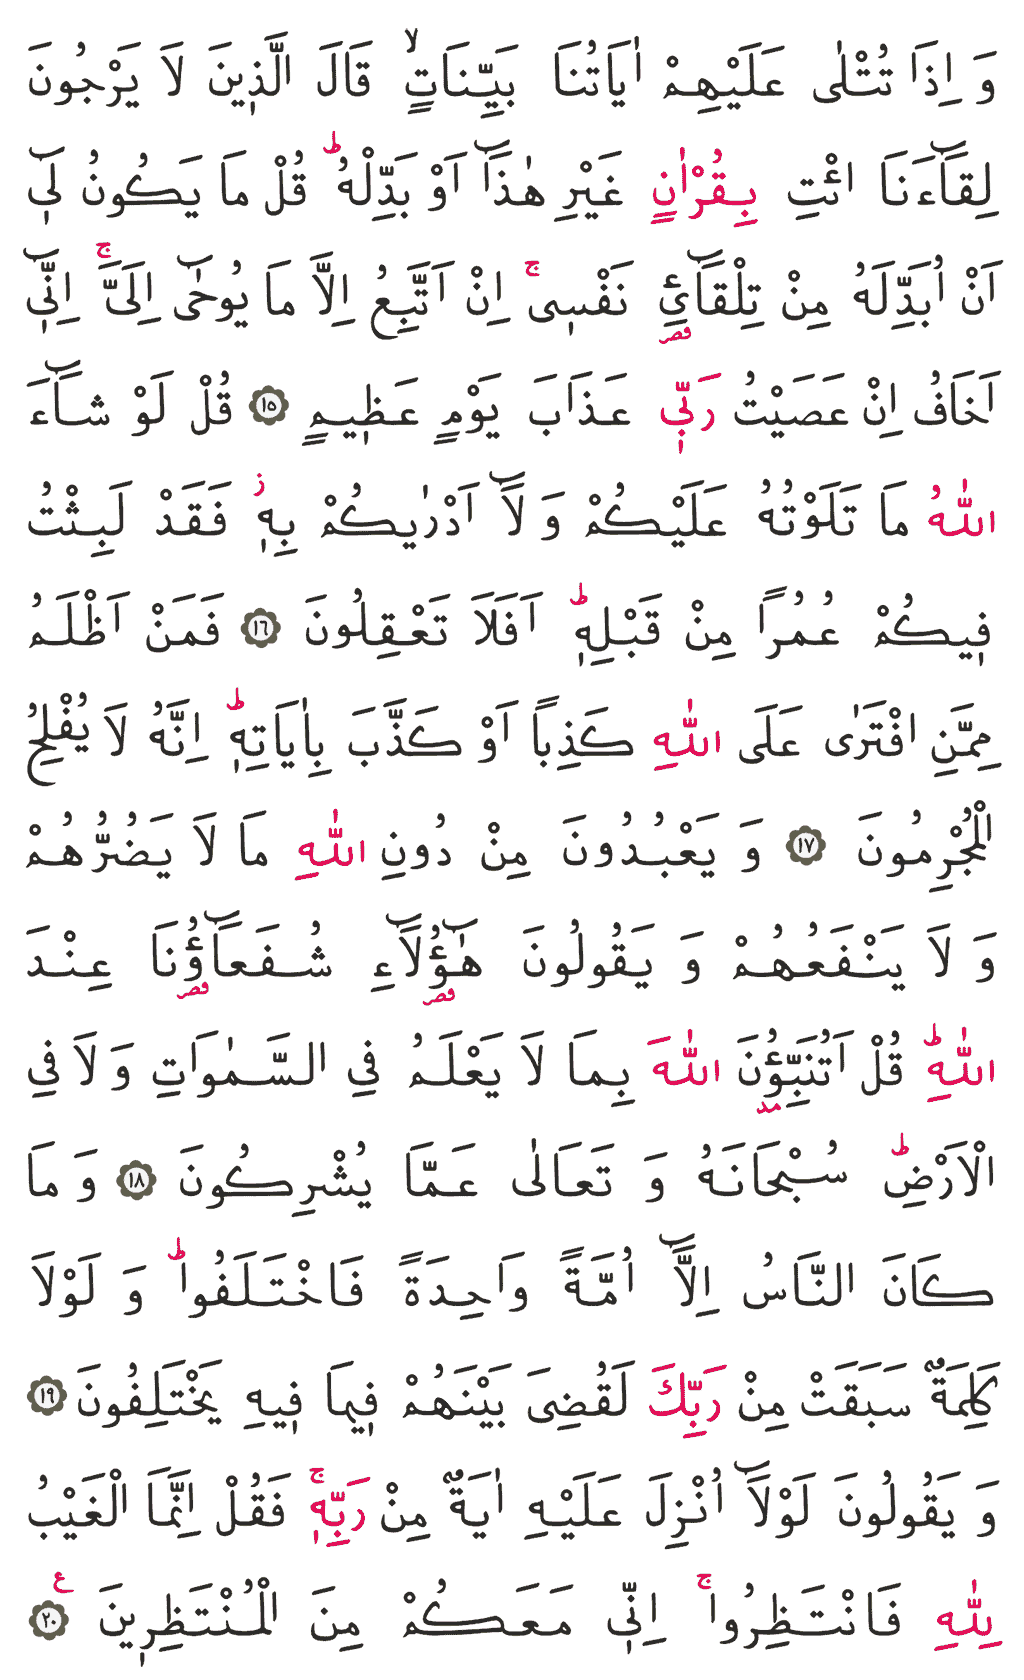 وَ اِذَا تُتْلٰى عَلَيْهِمْ اٰيَاتُنَا بَيِّنَاتٍۙ قَالَ الَّذ۪ينَ لَا يَرْجُونَ
لِقَٓاءَنَا ائْتِ بِقُرْاٰنٍ غَيْرِ هٰذَٓا اَوْ بَدِّلْهُۜ قُلْ مَا يَكُونُ ل۪ٓي
اَنْ اُبَدِّلَهُ مِنْ تِلْقَٓائِ نَفْس۪يۚ اِنْ اَتَّبِعُ اِلَّا مَا يُوحٰٓى اِلَيَّۚ اِنّ۪ٓي
اَخَافُ اِنْ عَصَيْتُ رَبّ۪ي عَذَابَ يَوْمٍ عَظ۪يمٍ ﴿١٥﴾ قُلْ لَوْ شَٓاءَ
اللّٰهُ مَا تَلَوْتُهُ عَلَيْكُمْ وَ لَٓا اَدْرٰيكُمْ بِه۪ۘ فَقَدْ لَبِثْتُ
ف۪يكُمْ عُمُرًا مِنْ قَبْلِه۪ۜ اَفَلَا تَعْقِلُونَ ﴿١٦﴾ فَمَنْ اَظْلَمُ
مِمَّنِ افْتَرٰى عَلَى اللّٰهِ كَذِبًا اَوْ كَذَّبَ بِاٰيَاتِه۪ۜ اِنَّهُ لَا يُفْلِحُ
الْمُجْرِمُونَ ﴿١٧﴾ وَ يَعْبُدُونَ مِنْ دُونِ اللّٰهِ مَا لَا يَضُرُّهُمْ
وَ لَا يَنْفَعُهُمْ وَ يَقُولُونَ هٰٓؤُ۬لَٓاءِ شُفَعَٓاؤُ۬نَا عِنْدَ
اللّٰهِۜ قُلْ اَتُنَبِّؤُ۫نَ اللّٰهَ بِمَا لَا يَعْلَمُ فِي السَّمٰوَاتِ وَ لَا فِي
الْاَرْضِۜ سُبْحَانَهُ وَ تَعَالٰى عَمَّا يُشْرِكُونَ ﴿١٨﴾ وَ مَا
كَانَ النَّاسُ اِلَّٓا اُمَّةً وَاحِدَةً فَاخْتَلَفُواۜ وَ لَوْلَا
كَلِمَةٌ سَبَقَتْ مِنْ رَبِّكَ لَقُضِيَ بَيْنَهُمْ ف۪يمَا ف۪يهِ يَخْتَلِفُونَ ﴿١٩﴾
وَ يَقُولُونَ لَوْلَٓا اُنْزِلَ عَلَيْهِ اٰيَةٌ مِنْ رَبِّه۪ۚ فَقُلْ اِنَّمَا الْغَيْبُ
لِلّٰهِ فَانْتَظِرُواۚ اِنّ۪ي مَعَكُمْ مِنَ الْمُنْتَظِر۪ينَ ﴿٢٠﴾ ع